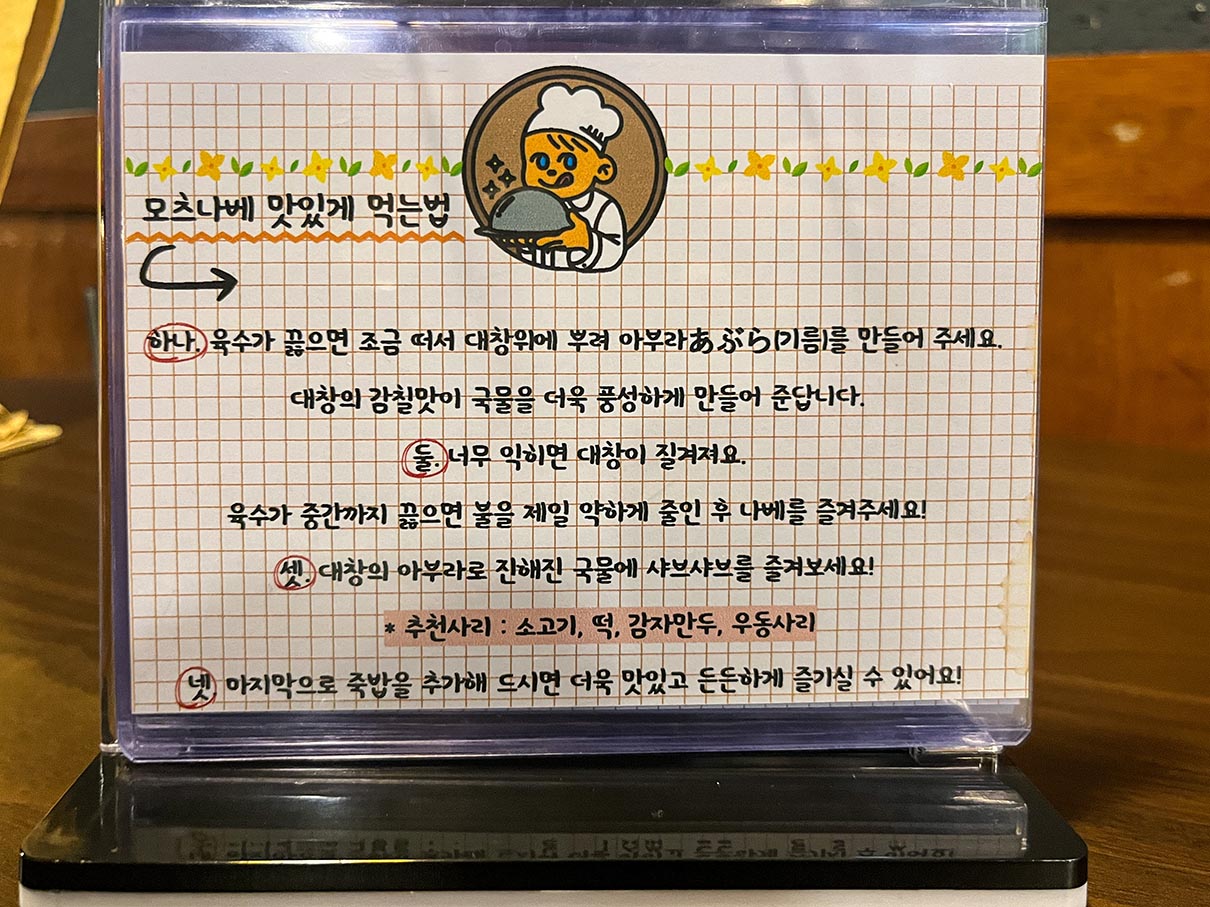 모츠나베 맛있게 먹는법
하나. 육수가 끓으면 조금 떠서 대창위에 뿌려 아부라あぶら(기름)를 만들어 주세요.
대창의 감칠맛이 국물을 더욱 풍성하게 만들어 준답니다.
둘. 너무 익히면 대창이 질겨져요.
육수가 중간까지 끓으면 불을 제일 약하게 줄인 후 나베를 즐겨주세요!
셋. 대창의 아부라로 진해진 국물에 샤브샤브를 즐겨보세요!
* 추천사리 : 소고기, 떡, 감자만두, 우동사리
넷. 마지막으로 죽밥을 추가해 드시면 더욱 맛있고 든든하게 즐기실 수 있어요!